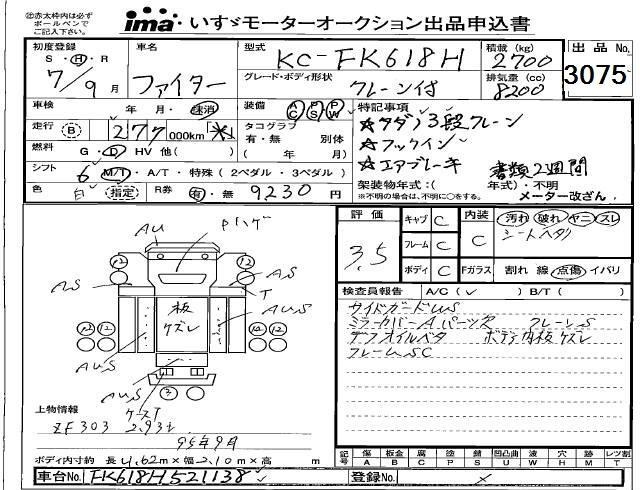 ㊟赤太枠内は必ず
ボールペンで
ご記入下さい。
ima いすゞモーターオークション出品申込書
初度登録
S・H・R
7/9月
車名
ファイター
型式
KC-FK618H
積載(kg)
2700
出品No.
3075
グレード・ボディ形状
クレーン付
排気量(cc)
8200
車検 年 月・抹消
装備 AC PS PW
特記事項
走行 B 277 000km
タコグラフ
有・無 別体
( 年 月)
☆タダノ3段クレーン
☆フックイン
☆エアブレーキ
書類2週間
燃料 G・D HV 他( )
シフト 6 M/T・A/T・特殊(2ペダル・3ペダル)
架装物年式:( 年式)・不明
※不明の場合は、不明に○をする。 メーター改ざん。
色 白 指定 R券 有・無 9230円
評価 3.5
キャブ C
フレーム C
ボディ C
内装 C
汚れ 破れ ヤニ スレ
シートヘタリ
Fガラス 割れ 線 点傷 イバリ
検査員報告 A/C(✓) B/T( )
サイドガードUS
ミラーカバーAパーツ欠 クレーンS
デフオイルベタ ボディ内板ケズレ
フレームSC
AU
Pハゲ
12
12
AS
AS
T
板
ケズレ
AUS
12 12
12 12
AUS
AUS
3
ケースT
上物情報
ZF303 2.93t
95年9月
ボディ内寸約 長4.62m×幅2.10m×高 m
記号 傷A 板金B 腐C 塗P 錆S 凹凸曲U 波W 穴H 跡M レツ割T
車台No. FK618H521138
登録No.